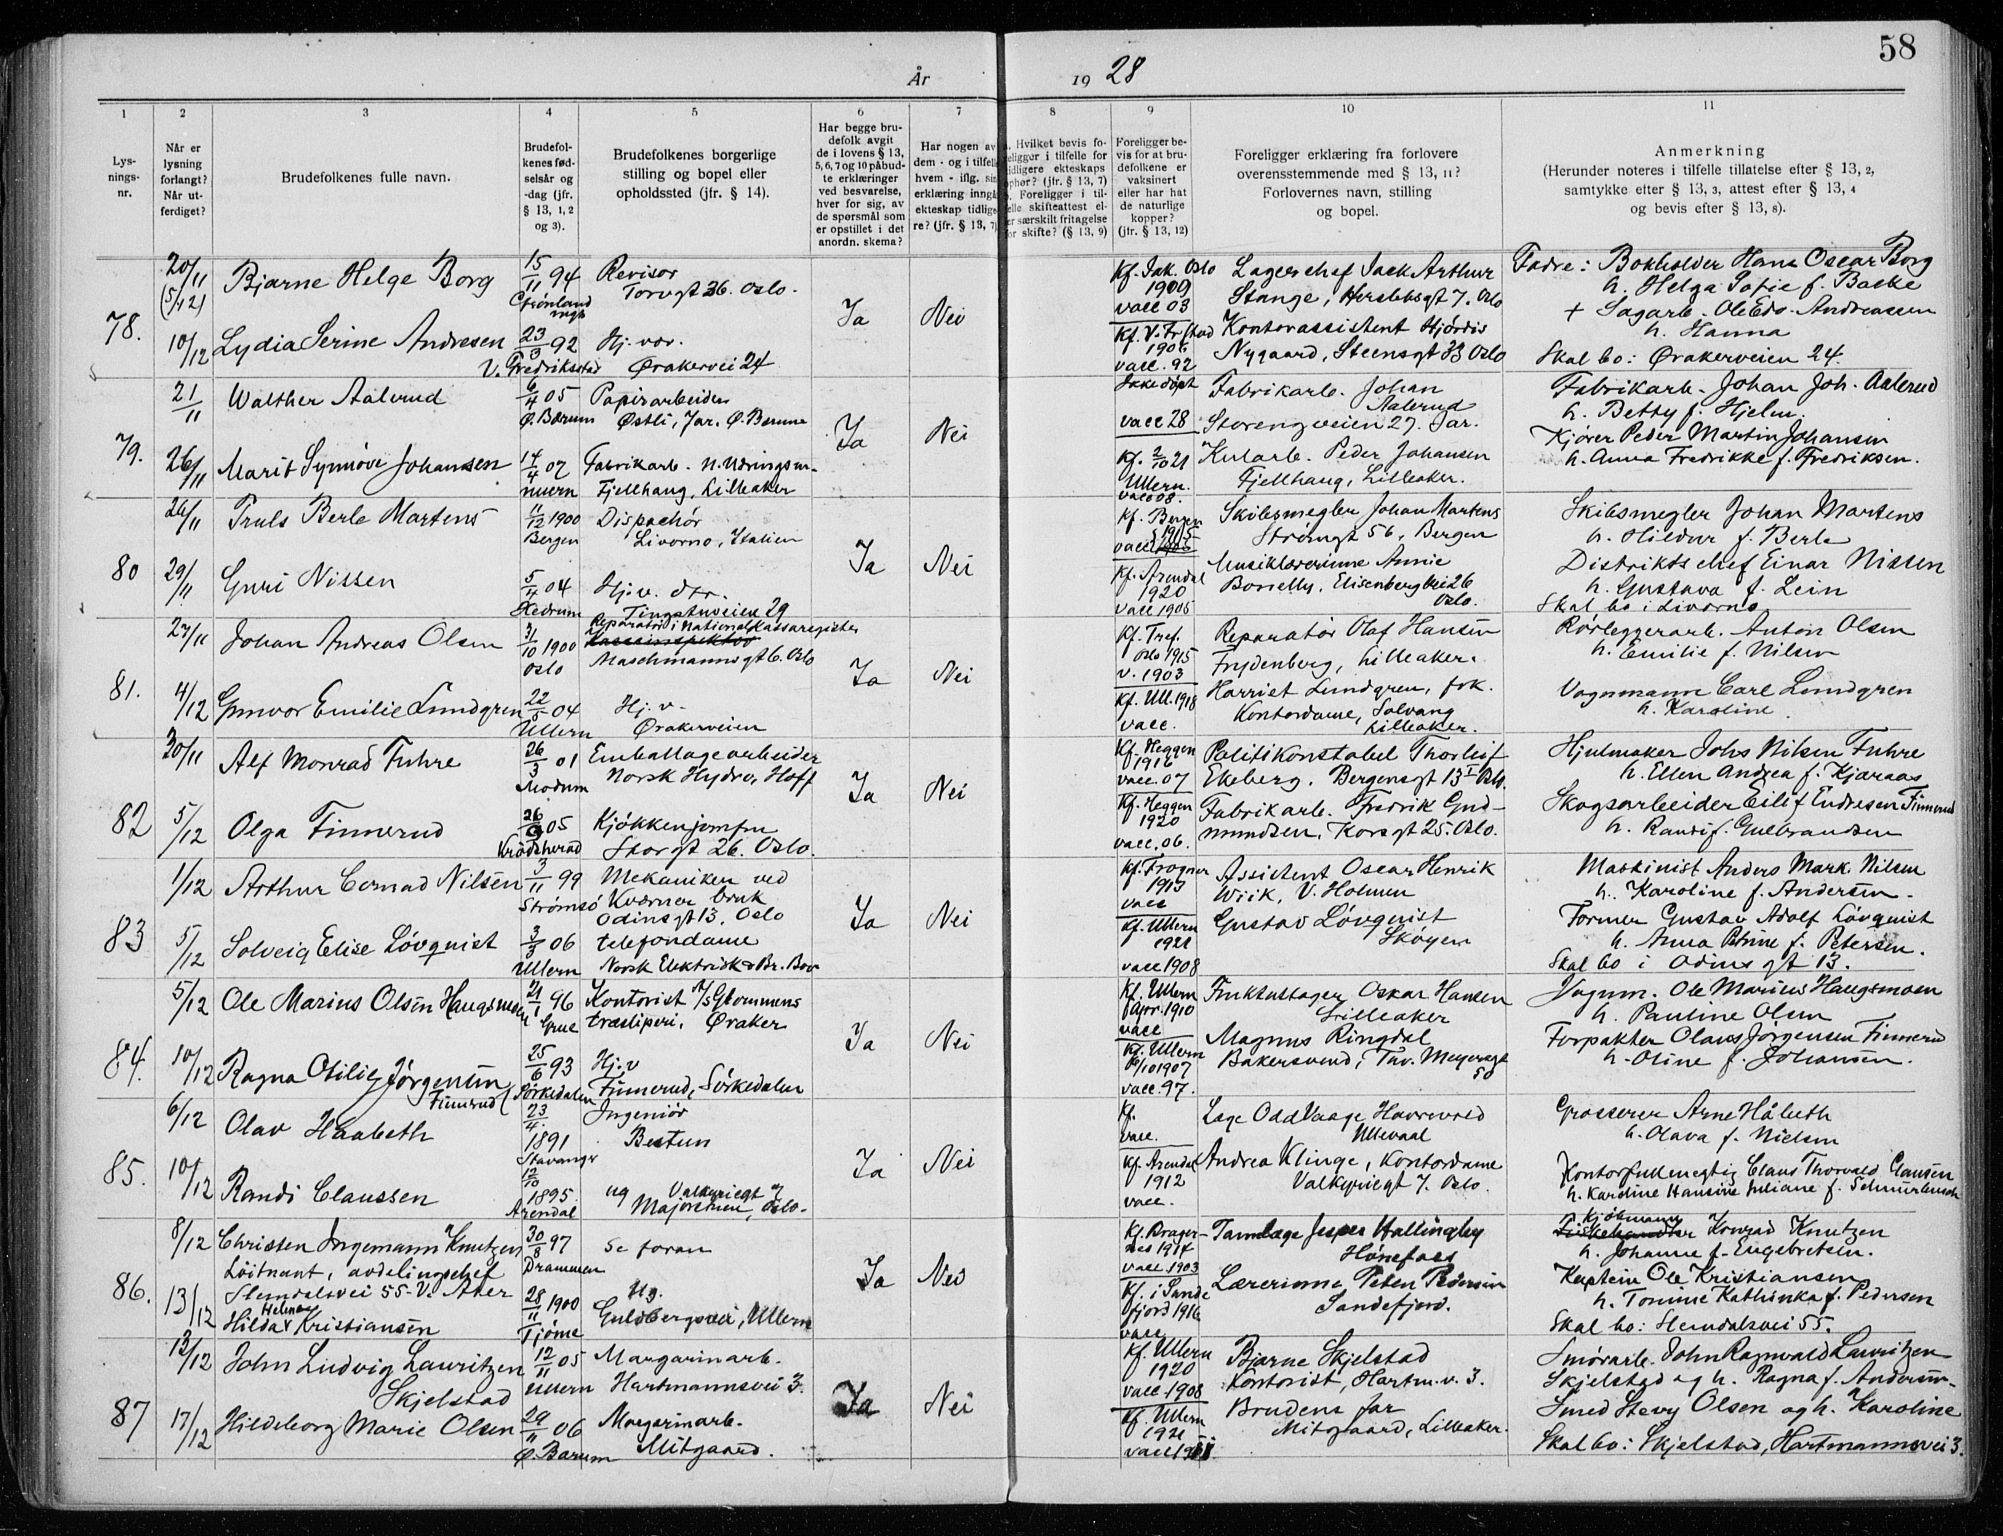 58
År 1928
1 2 3 4 5 6 7 8 9 10 11
Lys-
nings-
nr.
Når er
lysning
forlangt?
Når ut-
ferdiget?
Brudefolkenes fulle navn.
Brudefol-
kenes fød-
selsår og
-dag (jfr.
§ 13, 1, 2
og 3).
Brudefolkenes borgerlige
stilling og bopel eller
opholdssted (jfr. § 14).
Har begge bru-
defolk avgit
de i lovens § 13,
5, 6, 7 og 10 påbud-
te erklæringer
ved besvarelse,
hver for sig, av
de spørsmål som
er opstillet i det
anordn. skema?
Har nogen av
dem - og i tilfelle
hvem - iflg. sin
erklæring inngå
ekteskap tidlige
re? (jfr. § 13, 7)
. Hvilket bevis fo-
religger i tilfelle for
tidligere ekteskaps
ophør? (jfr. § 13, 7)
. Foreligger i til-
felle skifteattest el-
er særskilt fritagelse
for skifte? (§ 13, 9)
Foreligger be-
vis for at bru-
defolkene er
vaksinert
eller har hat
de naturlige
kopper?
(jfr. § 13, 12)
Foreligger erklæring fra forlovere
overensstemmende med § 13, 11?
Forlovernes navn, stilling
og bopel.
Anmerkning
(Herunder noteres i tilfelle tillatelse efter § 13, 2,
samtykke efter § 13, 3, attest efter § 13, 4
og bevis efter § 13, 8).
78.
20/11
(5/12)
Bjarne Helge Borg
15/11 94
Revisor
Torvgt 36. Oslo.
Ja
Nei
Kf. Jak. Oslo
1909
vacc 03
Lagerschef Jack Arthur
Stange, Herslebsgt 7. Oslo
Fadre: Bokholder Hans Oscar Borg
h. Helga Sofie f. Backe
10/12
Lydia Serine Andresen
23/3 92
V. Fredriksstad
Hj. vær.
Ørakervei 24
Kf. V. Fr.stad
1906
vacc. 92
Kontorassistent Hjørdis
Nygaard, Steensgt 33 Oslo
+ Sagarb. Ole Edv. Andreassen
h. Hanna
Skal bo: Ørakerveien 24.
79.
21/11
Walther Aalerud
6/4 05
Ø. Bærum
Papirarbeider
Østli, Jar. Ø. Bærum
Ja
Nei
Ikke døpt
vacc 28
Fabrikarb. Johan
Aalerud
Storengveien 27. Jar.
Fabrikarb. Johan Joh. Aalerud
h. Betty f. Hjelm.
26/11
Marit Synnøve Johansen
14/4 07
Fabrikarb. N. Næringsm.
Fjellhaug, Lilleaker
Kf. 2/10 21
Ullern.
vacc 08.
Kularb. Peder Johansen
Fjellhaug, Lilleaker.
Kjører Peder Martin Johansen
h. Anna Fredrikke f. Fredriksen.
80
26/11
Truls Berle Martens
11/12 1900
Bergen
Dispachør
Livorno, Italien
Ja
Nei
Kf. Bergen
1915
vacc
Skibsmegler Johan Martens
Strømgt 56, Bergen
Skibsmegler Johan Martens
h. Hildur f. Berle
29/11
Guri Nissen
5/4 04
Hedrum
Hj. v. dtr.
Tingstuveien 29
Kf. Arendal
1920
vacc 1905
Musiklærerinne Annie
Borrelly, Elisenbergvei 26
Oslo.
Distriktschef Einar Nissen
h. Gustava f. Lein
Skal bo i Livorno
81.
27/11
Johan Andreas Olsen
31/10 1900
Oslo
Reparatør i National Kassaregister
Kasseinspektør
Maschmannsgt 6. Oslo
Ja
Nei
Kf. Tref.
Oslo 1915
v. 1903
Reparatør Olaf Hansen
Frydenberg, Lilleaker.
Rørleggerarb. Anton Olsen
h. Emilie f. Nilsen
4/12
Gunvor Emilie Lundgren
22/5 04
Ullern
Hj. v.
Ørakerveien
Kf. Ull. 1918
vacc.
Harriet Lundgren, frk.
Kontordame, Solvang
Lilleaker.
Vognmann Carl Lundgren
h. Karoline
82
30/11
Alf Monrad Fuhre
26/3 01
Modum
Emballagearbeider
Norsk Hydro, Hoff
Ja
Nei
Kf. Heggen
1916
vacc. 07
Politikonstabel Thorleif
Ekeberg. Bergensgt 13 I Oslo.
Hjulmaker Johs Nilsen Fuhre
h. Ellen Andrea f. Kjæraas
5/12
Olga Finnerud
26/9 05
Krødsherad
Kjøkkenjomfru
Storgt 26. Oslo.
Kf. Heggen
1920
vacc. 06.
Fabrikarb. Fredrik Gud-
mundsen, Korsgt 25. Oslo.
Skogsarbeider Eilif Endresen Finnerud
h. Randi f. Gulbrandsen
83
1/12
Arthur Conrad Nilsen
3/11 99
Strømsø
Mekaniker ved
Kværner bruk
Odinsgt 13, Oslo
Ja
Nei
Kf. Frogner
1915
vacc
Assistent Oscar Henrik
Wiik, V. Holmen
Maskinist Anders Mark. Nilsen
h. Karoline f. Andersen.
5/12
Solveig Elise Lövquist
3/3 06
Ullern
telefondame
Norsk Elektrisk & Br. Bov
Kf. Ullern
1921
vacc 1908
Gustav Lövquist
Skøyen
Former Gustav Adolf Lövquist
h. Anna Petrine f. Petersen.
Skal bo i Odinsgt 13.
84.
5/12
Ole Marius Olsen Haugsmoen
21/1 96
Grue
Kontorist A/S Glommens
træsliperi, Øraker
Ja
Nei
Kf. Ullern
1910
vacc
Frukthandler Oskar Hansen
Lilleaker
Vognm. Ole Marius Haugsmoen
h. Pauline Olsen
10/12
Ragna Otilie Jørgensen
Finnerud
25/6 93
Sørkedalen
Hj. v
Finnerud, Sørkedalen
Kf. Ullern
6/10 1907
vacc. 97.
Magnus Ringdal
Bakersvend, Thv. Meyersgt
50
Forpakter Olaus Jørgensen Finnerud
h. Oline f. Johansen.
85.
6/12
Olav Haabeth
23/4.
1891
Stavanger
Ingeniør
Bestum
Ja
Nei
Kf.
vacc.
Læge Odd Vaage Havrevold
Ullevaal
Grosserer Arne Håbeth
h. Olava f. Nielsen
10/12
Randi Claussen
12/10
1895.
Arendal
ug Valkyriegt 7
Majorstuen, Oslo.
Kf. Arendal
1912
vacc.
Andrea Klinge, Kontordame
Valkyriegt 7. Oslo.
Kontorfuldmegtig Claus Thorvald Clausen
h. Karoline Hansine Juliane f. Schnurbusch
86.
8/12
Christen Ingemann Knutzen
Løitnant, avdelingschef
Slemdalsvei 55. V. Aker
30/8 97
Drammen
Se foran
Ja
Nei
Kf. Brager-
nes 1914
vacc. 1903
Tannlæge Jesper Hallingby
Hønefoss
Kjøbmann
Fiskehandler Konrad Knutzen
h. Johanne f. Engebretsen.
13/12
Helene
Hilda Kristiansen
28/11 1900
Tjøme
Hg.
Guldbergsvei, Ullern
Kf. i Sande
fjord 1916
vacc
Lærerinne Peten Pedersen
Sandefjord.
Kaptein Ole Kristiansen
h. Tomine Kathinka f. Pedersen
Skal bo: Slemdalsvei 55.
87
13/12
John Ludvig Lauritzen
Skjelstad
12/11 05
Ullern
Margarinarb.
Hartmannsvei 3.
Ja
Nei
Kf. Ullern
1920
vacc 1908
Bjarne Skjelstad
Kontorist, Hartm. v. 3.
Smørarb. John Ragnvald Lauritzen
Skjelstad og h. Ragna f. Andersen.
17/12
Hildeborg Marie Olsen
29/11 06
Ø. Bærum
Margarinarb.
Mitgaard.
Kf. Ullern
1921
Brudens far
Mitgaard, Lilleaker.
Smed Stevy Olsen og h. Karoline
Skal bo: Skjelstad, Hartmannsvei 3.